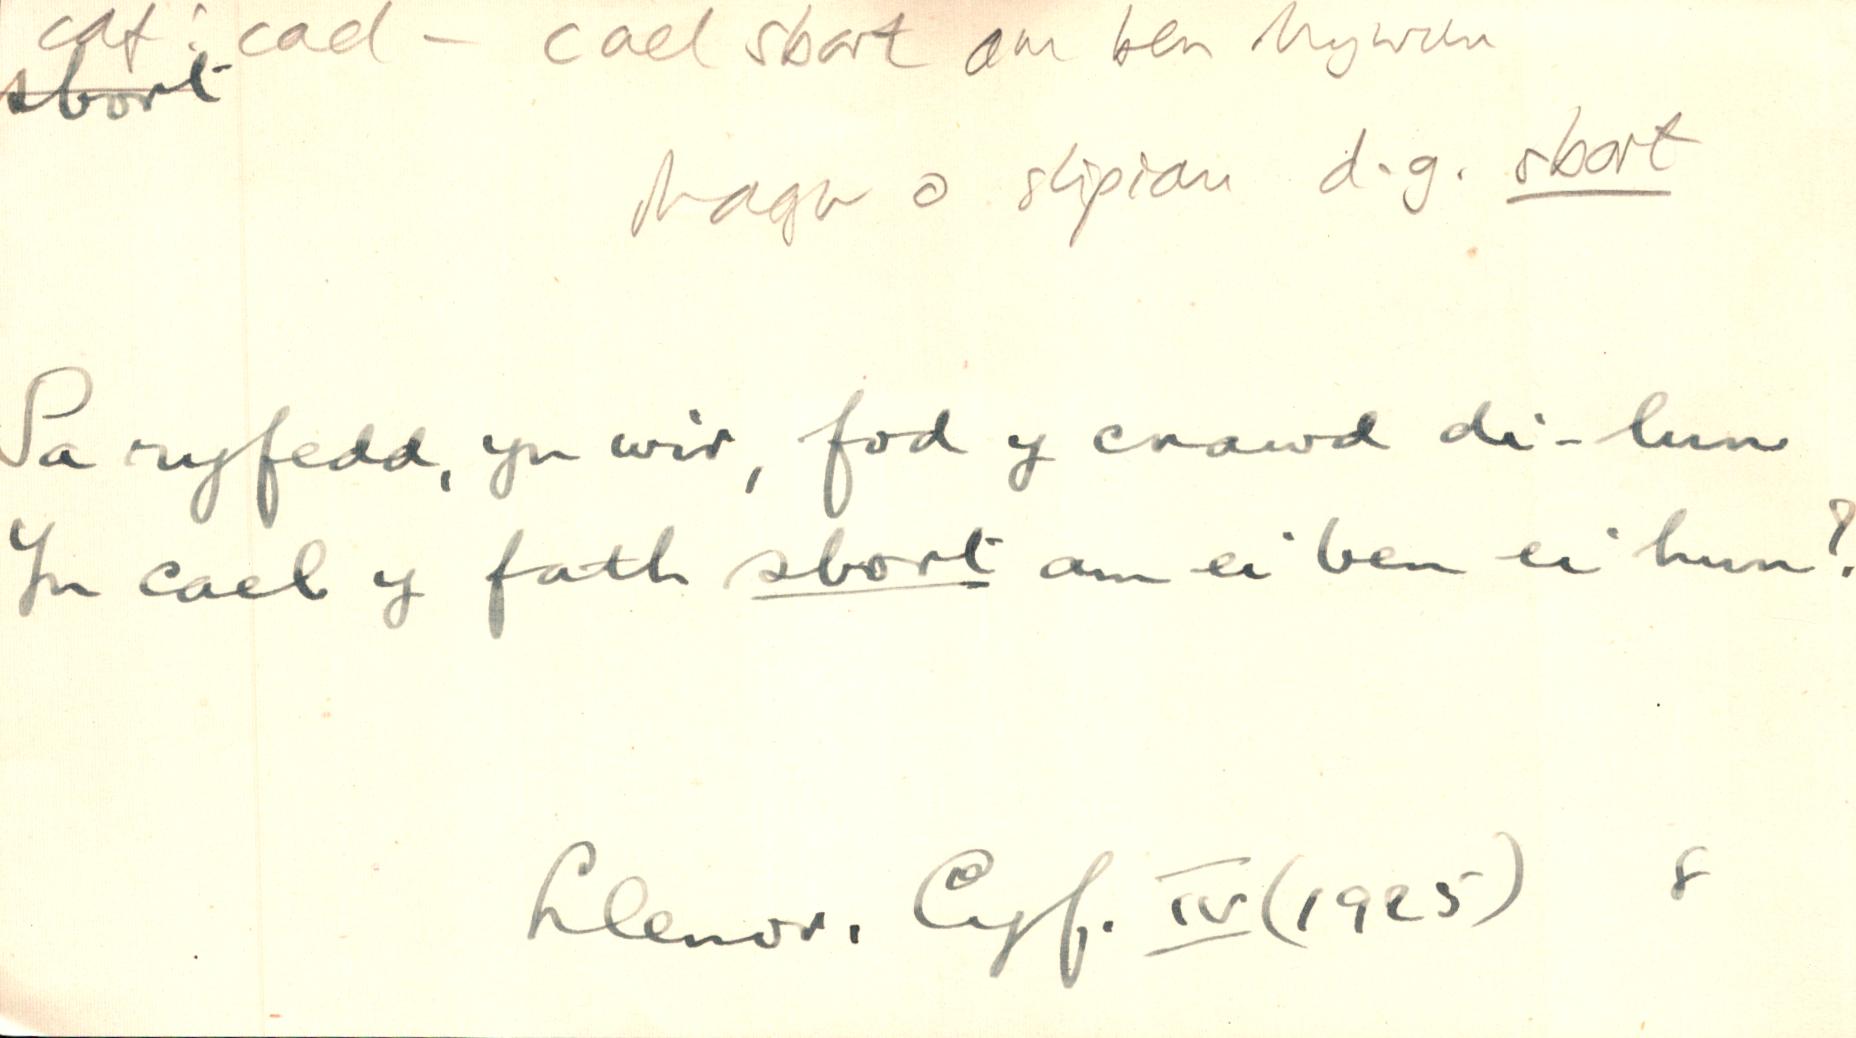 caf: cael – cael sbort am ben rhywun
sbort
rhagor o slipiau d.g. sbort
Pa ryfedd, yn wir, fod y cnawd di-lun
Yn cael y fath sbort am ei ben ei hun?
Llenor. Cyf. IV (1925) 8